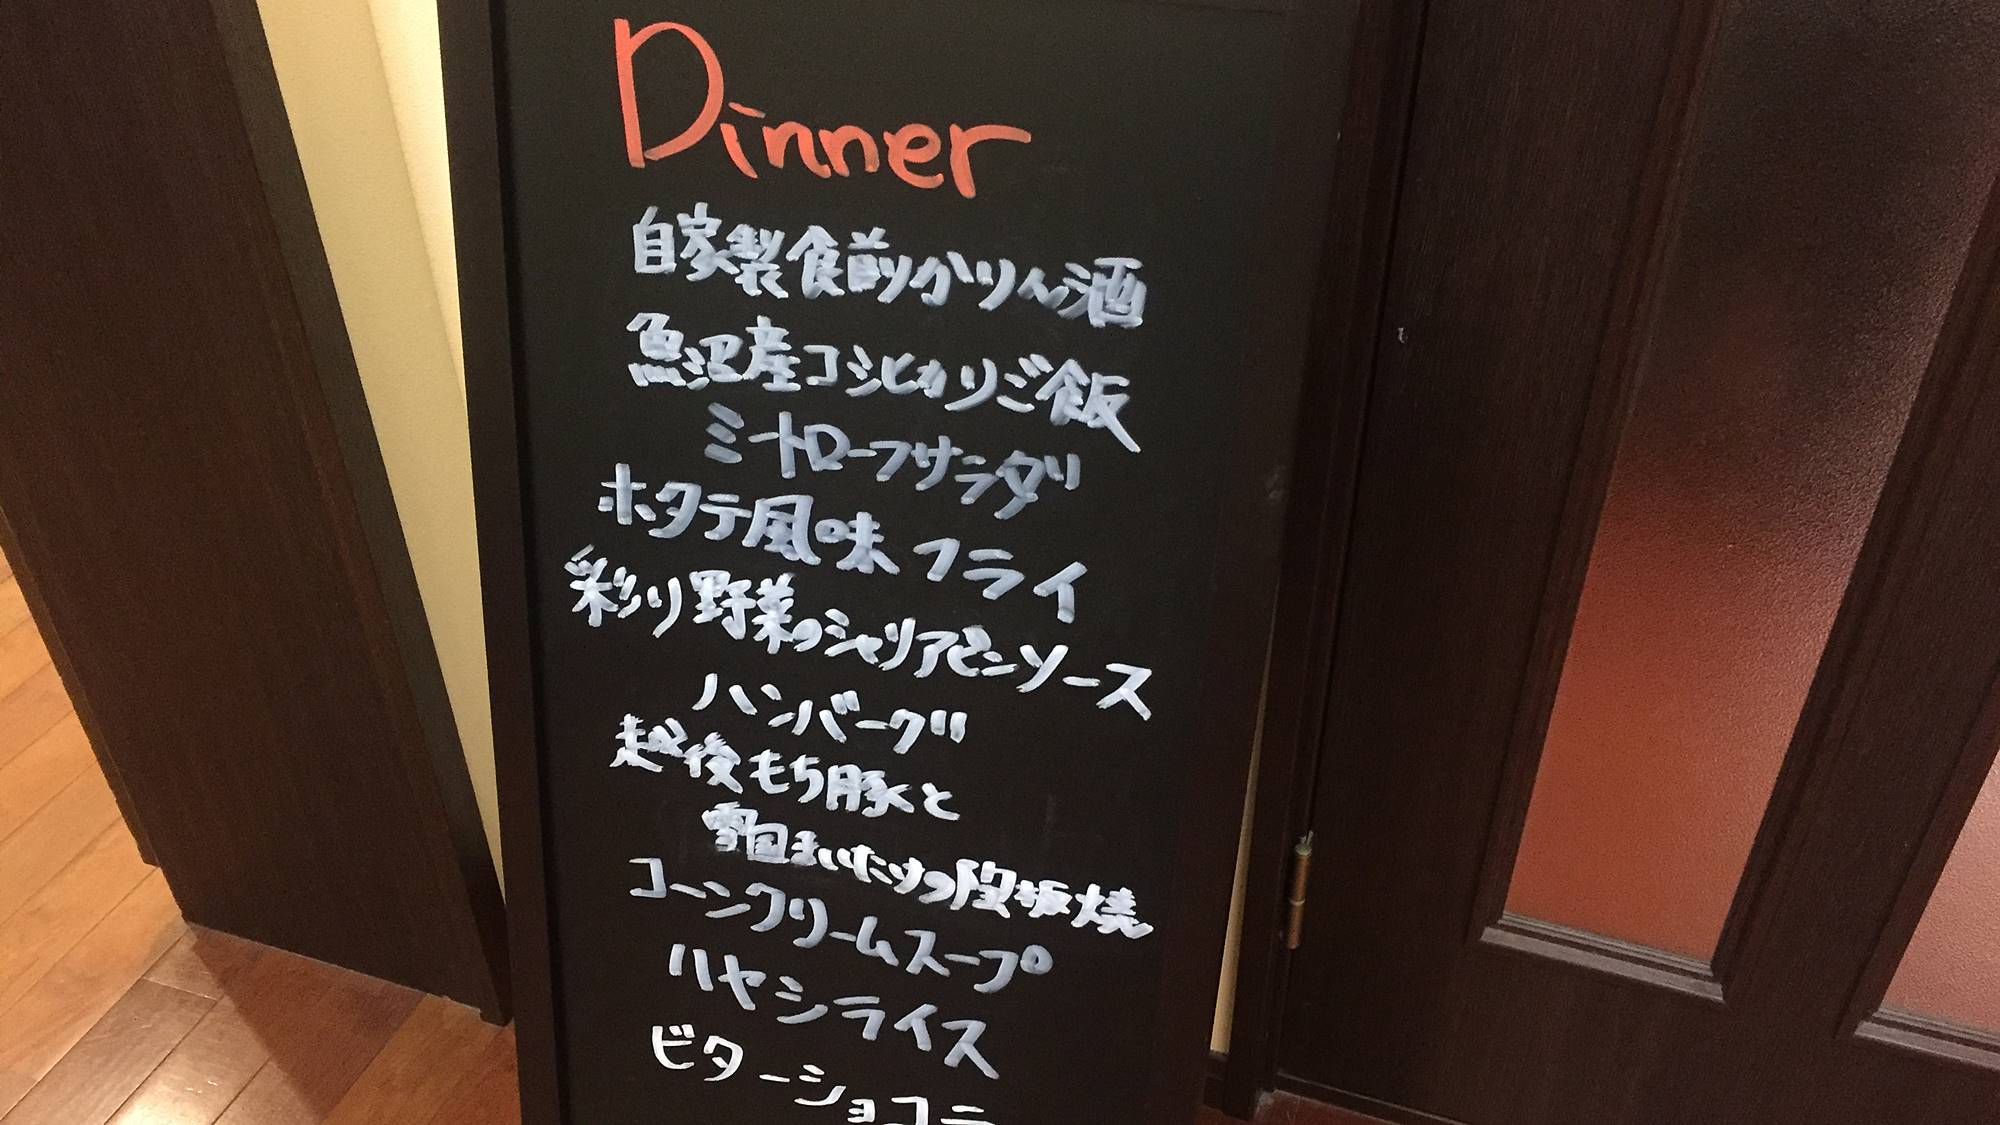 Dinner
自家製食前かりん酒
魚沼産コシヒカリご飯
ミートローフサラダ
ホタテ風味フライ
彩り野菜のシャリアピンソース
ハンバーグ
越後もち豚と
雪国まいたけの陶板焼
コーンクリームスープ
ハヤシライス
ビターショコラ